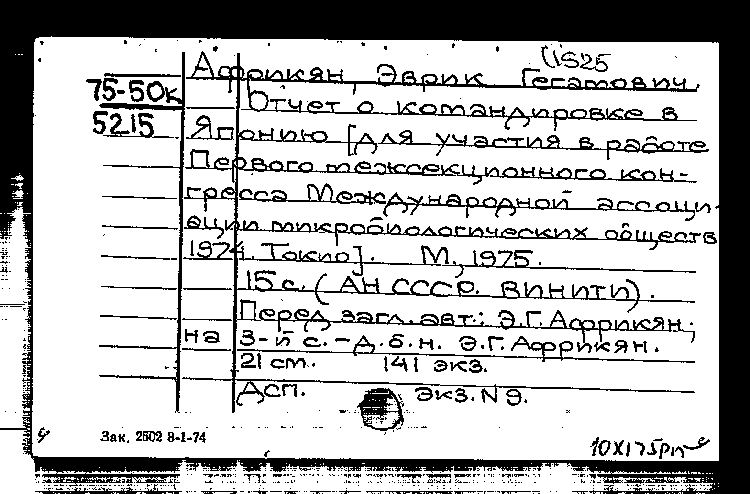 1S25
Африкян, Эврик Гегамович.
75-50к
5215
Отчет о командировке в
Японию [для участия в работе
Первого межсекционного кон-
гресса Международной ассоци-
ации микробиологических обществ
1974. Токио]. М., 1975.
15 с. (АН СССР. ВИНИТИ).
Перед загл. авт.: Э.Г. Африкян;
на 3-й с. – д.б.н. Э.Г. Африкян.
21 см. 141 экз.
Дсп. Экз. N 9.
Зак. 2502 8-1-74